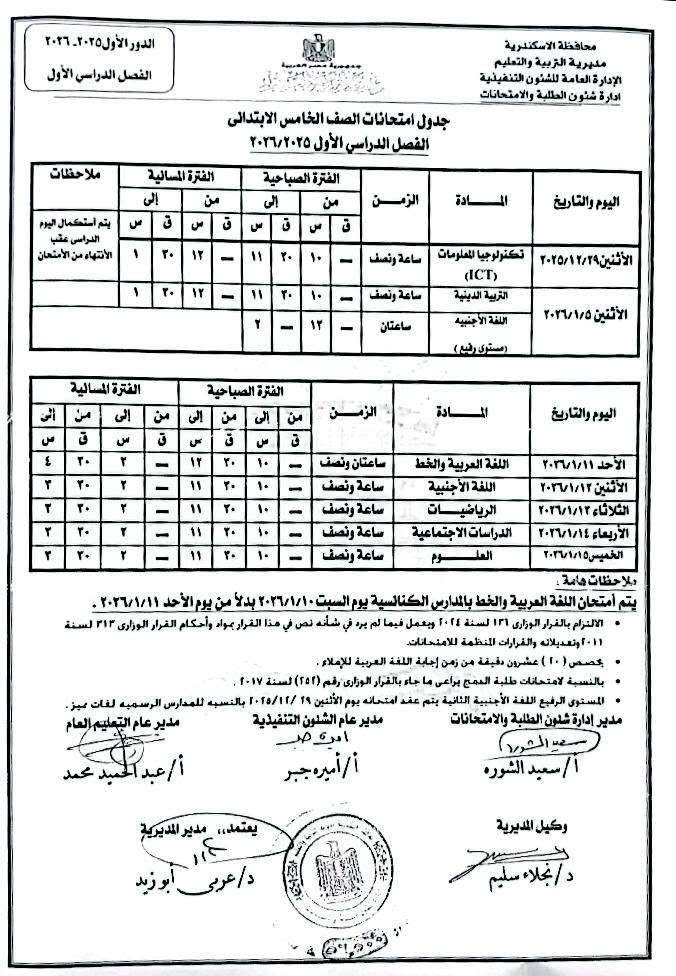 محافظة الاسكندرية
مديرية التربية والتعليم
الإدارة العامة للشئون التنفيذية
ادارة شئون الطلبة والامتحانات
جمهورية مصر العربية
الدور الأول ٢٠٢٥-٢٠٢٦
الفصل الدراسي الأول
جدول امتحانات الصف الخامس الابتدائى
الفصل الدراسي الأول ٢٠٢٦/٢٠٢٥
اليوم والتاريخ المــادة الزمـن الفترة الصباحية الفترة المسائية ملاحظات
من إلى من إلى
ق س ق س ق س ق س
يتم أستكمال اليوم الدراسى عقب الأنتهاء من الأمتحان
الأثنين ٢٠٢٥/١٢/٢٩ تكنولوجيا المعلومات (ICT) ساعة ونصف — ١٠ ٣٠ ١١ — ١٢ ٣٠ ١
الأثنين ٢٠٢٦/١/٥ التربية الدينية ساعة ونصف — ١٠ ٣٠ ١١ — ١٢ ٣٠ ١
اللغة الأجنبيه (مستوى رفيع) ساعتان — ١٢ — ٢
اليوم والتاريخ المــادة الزمـن الفترة الصباحية الفترة المسائية
من إلى من إلى
ق س ق س ق س ق س
الأحد ٢٠٢٦/١/١١ اللغة العربية والخط ساعتان ونصف — ١٠ ٣٠ ١٢ — ٢ ٣٠ ٤
الأثنين ٢٠٢٦/١/١٢ اللغة الأجنبية ساعة ونصف — ١٠ ٣٠ ١١ — ٢ ٣٠ ٣
الثلاثاء ٢٠٢٦/١/١٣ الرياضيـات ساعة ونصف — ١٠ ٣٠ ١١ — ٢ ٣٠ ٣
الأربعاء ٢٠٢٦/١/١٤ الدراسات الاجتماعية ساعة ونصف — ١٠ ٣٠ ١١ — ٢ ٣٠ ٣
الخميس ٢٠٢٦/١/١٥ العلـوم ساعة ونصف — ١٠ ٣٠ ١١ — ٢ ٣٠ ٣
ملاحظات هامة :
يتم أمتحان اللغة العربية والخط بالمدارس الكنائسية يوم السبت ٢٠٢٦/١/١٠ بدلاً من يوم الأحد ٢٠٢٦/١/١١ .
• الالتزام بالقرار الوزارى ١٣٦ لسنة ٢٠٢٤ ويعمل فيما لم يرد في شأنه نص في هذا القرار بمواد وأحكام القرار الوزارى ٣١٣ لسنة
٢٠١١ وتعديلاته والقرارات المنظمة للامتحانات.
• يخصص (٢٠) عشرون دقيقة من زمن إجابة اللغة العربية للإملاء .
• بالنسبة لامتحانات طلبة الدمج يراعى ما جاء بالقرار الوزارى رقم (٢٥٢) لسنة ٢٠١٧ .
• المستوى الرفيع اللغة الأجنبية الثانية يتم عقد امتحانه يوم الأثنين ٢٩ /٢٠٢٥/١٢ بالنسبه للمدارس الرسميه لغات مميز .
مدير إدارة شئون الطلبة والامتحانات مدير عام الشئون التنفيذية مدير عام التعليم العام
أ/ سعيد الشوره أ/ أميره جبر أ/ عبد الحميد محمد
وكيل المديرية
د/ نجلاء سليم
يعتمد،، مدير المديرية
د/ عربى أبو زيد